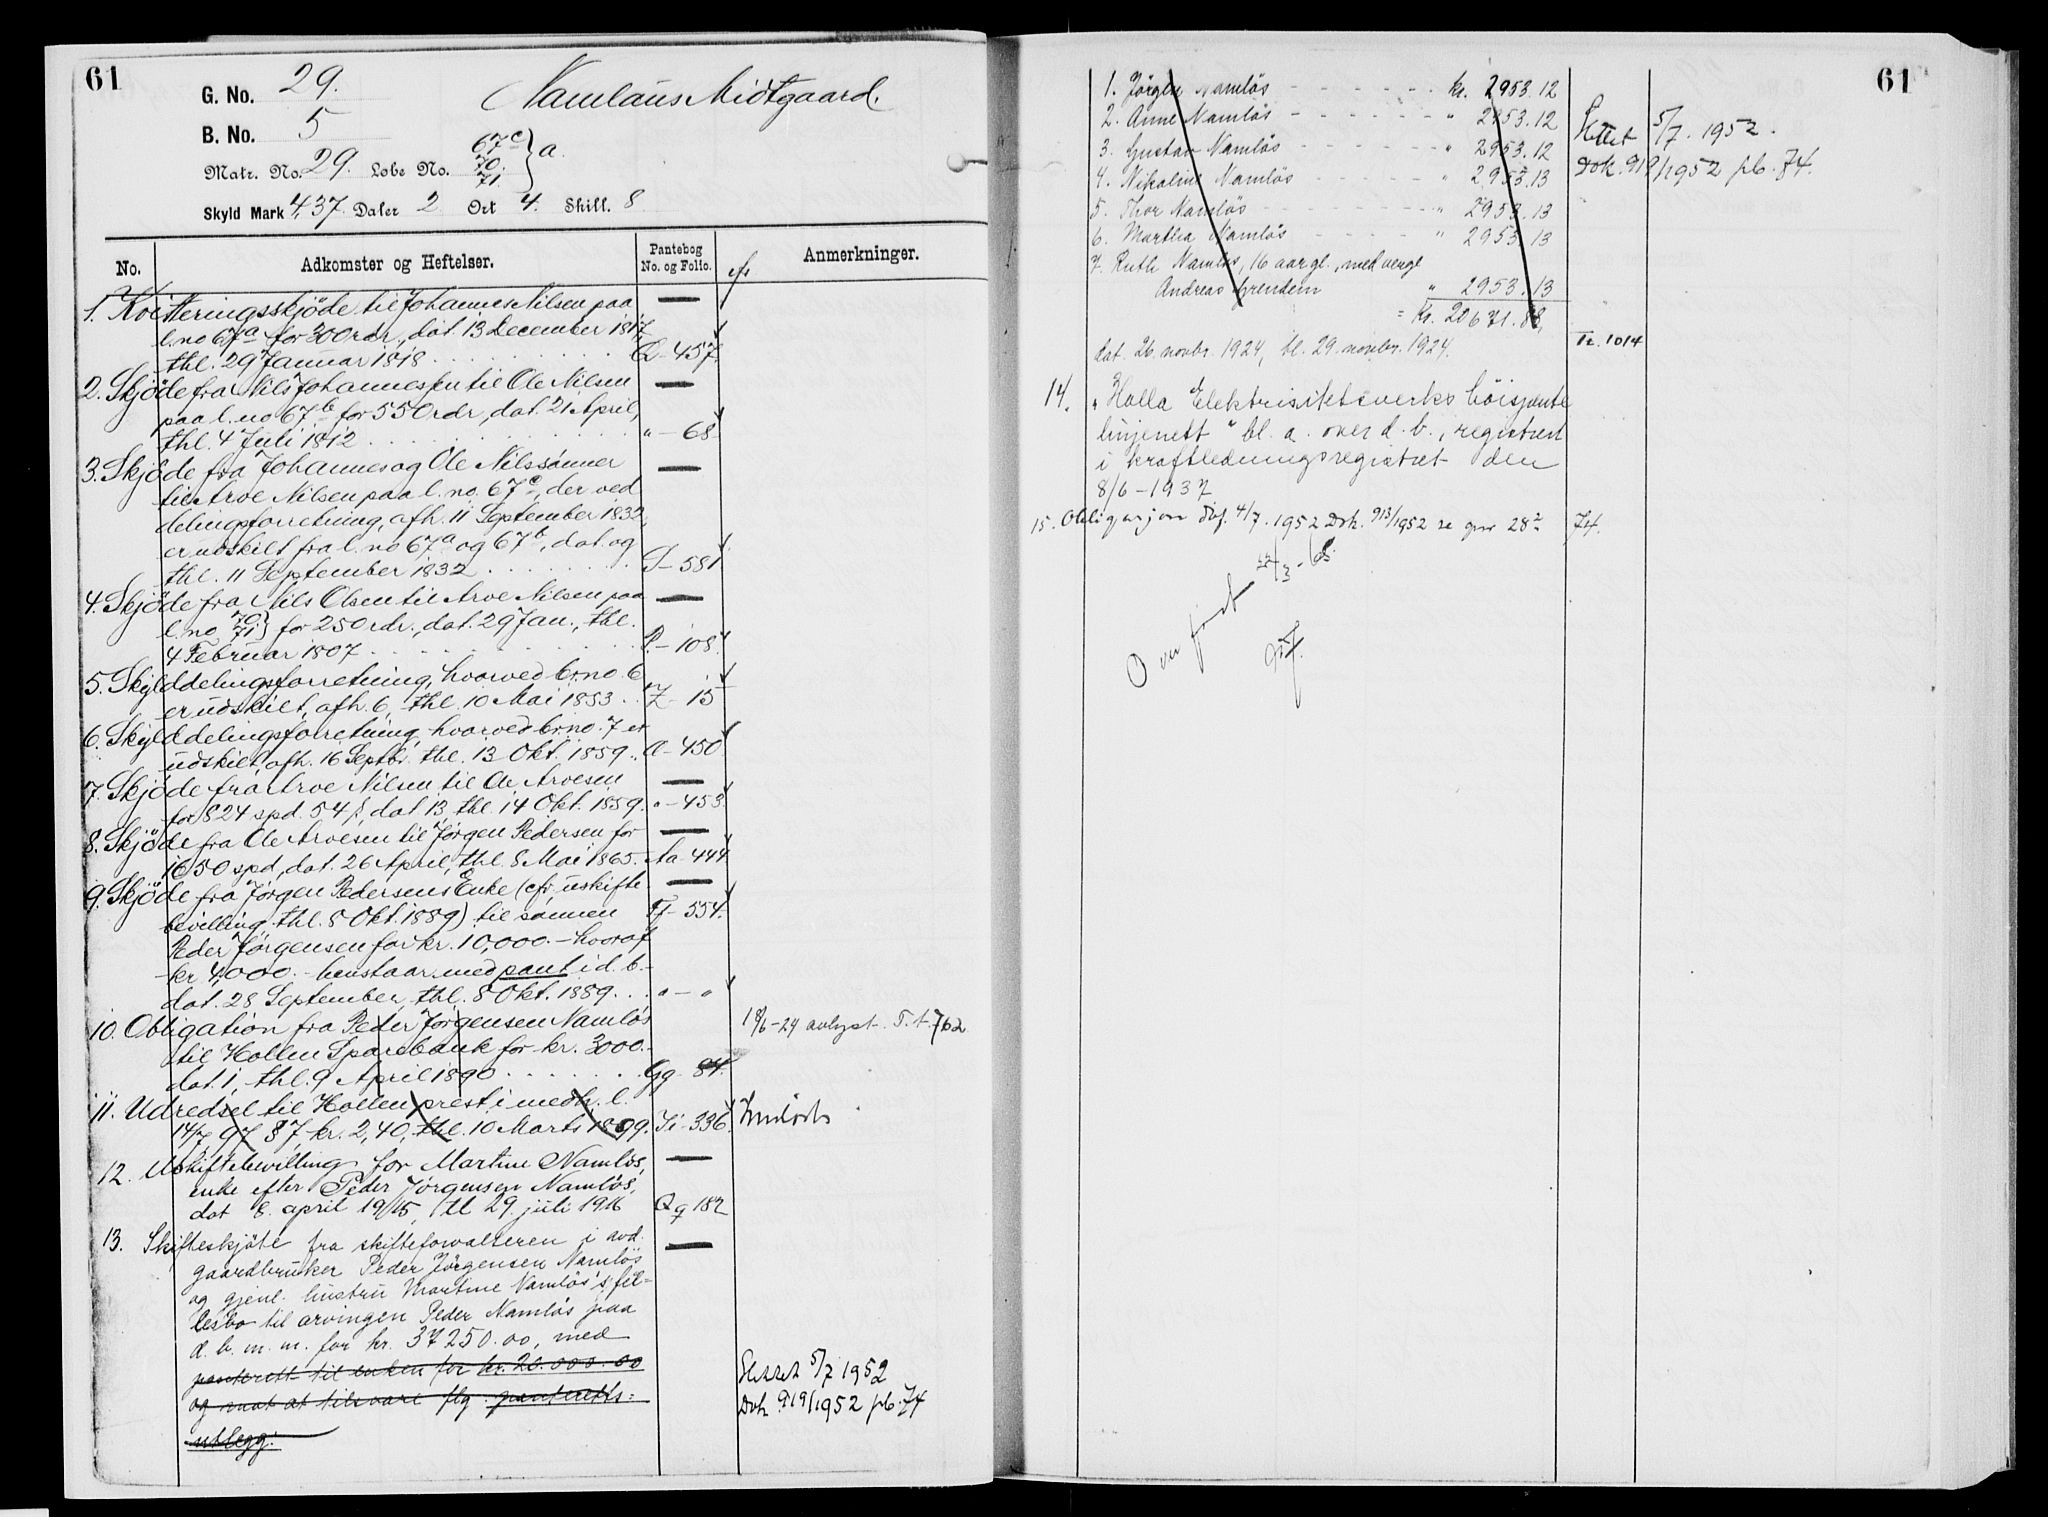 61
G. No. 29.
Namlaus Midtgaard.
B. No. 5
Matr. No. 29. Løbe No. 67c 70. 71 } a.
Skyld Mark 4,37. Daler 2 Ort 4. Skill. 8
No. Adkomster og Heftelser. Pantebog No. og Folio. Anmerkninger.
1. Kvitteringsskjöde til Johannes Nilsen paa
l. no 67a for 300 rdr., dat. 13 December 1817,
thl. 29 Januar 1818 Q - 457
2. Skjöde fra Nils Johannesen til Ole Nilsen
paa l. no 67b for 550 rdr, dat. 21 April,
thl. 4 Juli 1812 " - 68
3. Skjöde fra Johannes og Ole Nilssønner
til Arve Nilsen paa l. no. 67c, der ved
delingsforretning, afh. 11 September 1832,
er udskilt fra l. no 67a og 67b, dat. og
thl. 11 September 1832 S - 581
4. Skjöde fra Nils Olsen til Arve Nilsen paa
l. no 70 71} for 250 rdr., dat. 29 Jan., thl.
4 Februar 1807 P. - 108.
5. Skylddelingsforretning, hvorved br. no. 6
er udskilt, afh. 6, thl. 10 Mai 1853 Z - 15
6. Skylddelingsforretning hvorved br. no. 7 er
udskilt, afh. 16 Septbr. thl. 13 Okt. 1859. A - 450
7. Skjöde fra Arve Nilsen til Ole Arvesen
for 824 spd. 54 s, dat 13, thl. 14 Okt. 1859. " - 453.
8. Skjöde fra Ole Arvesen til Jörgen Pedersen for
1650 spd, dat. 26 April, thl. 8 Mai 1865. Aa - 444
9. Skjöde fra Jörgen Pedersens Enke (cfr. uskifte-
bevilling, thl. 8 Okt. 1889) til sønnen Ff - 554.
Peder Jörgensen for kr. 10,000. - hvoraf
kr 4,000. - henstaar med pant i d. b. -
dat. 28 September, thl. 8 Okt. 1889. " - "
10. Obligation fra Peder Jörgensen Namløs 18/6-24 avlyst. T. t. 762
til Hollen Sparebank for kr. 3000. -
dat. 1, thl. 9 April 1890 Gg - 84.
11. Udredsel til Hollen prest i medh. l.
14/7 97 § 7, kr. 2,40, thl. 10 Marts 1899. Ii - 336. Innløst
12. Uskiftebevilling for Martine Namlös,
enke efter Peder Jörgensen Namlös,
dat 8. april 1915, tl 29. juli 1916 Qq 182
13. Skifteskjöte fra skifteforvalteren i avd.
gaardbruker Peder Jörgensen Namlös
og gjenl. hustru Martine Namlös's fel=
lesbo til arvingen Peder Namlös paa
d. b. m. m. for kr. 37250.00, med
panterett til enken for kr. 20.000.00 Slettet 5/7 1952
og mot at tilsvare flg. panteretts= Dok 919/1952 pb. 74
utlegg:
61
1. Jörgen Namlös kr. 2953.12
2. Anne Namlös " 2953.12 Slettet 5/7. 1952.
3. Gustav Namlös " 2953.12 Dok. 919/1952 pb. 74.
4. Nikoline Namlös " 2953.13
5. Thor Namlös " 2953.13
6. Martha Namlös " 2953.13
7. Ruth Namlös, 16 aar gl., med verge
Andreas Grendem " 2953.13
= Kr. 20671.88,
dat. 26. novbr. 1924, tl. 29. novbr. 1924. Tt. 1014
14. "Holla Elektrisitetsverks höispente
linjenett" bl. a. over d. b., registrert
i kraftledningsregistret den
8/6 - 1937
15. Obligasjon dbf. 4/7. 1952 Dok. 913/1952 se gnr 28 2 74.
Overført /3 - 65